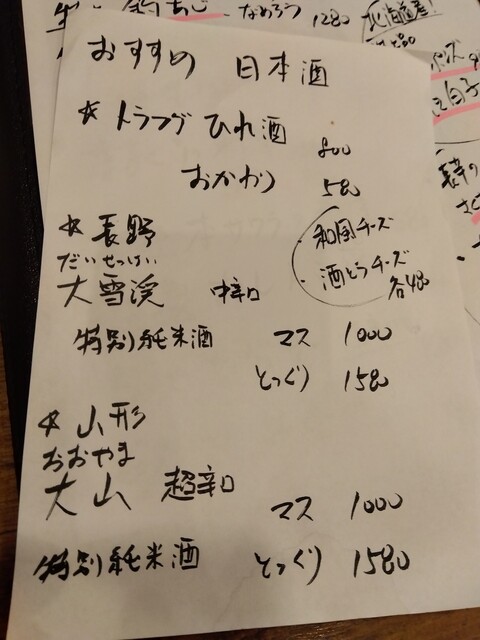 釣あじ なめろう 1280
北海道産
おすすめ 日本酒
☆ トラフグ ひれ酒 800
おかわり 580
☆ 長野
だいせっけい
大雪渓 中辛口
・和風チーズ
・酒とうチーズ
各480
特別純米酒 マス 1000
とっくり 1580
☆ 山形
おおやま
大山 超辛口
マス 1000
特別純米酒 とっくり 1580
白子